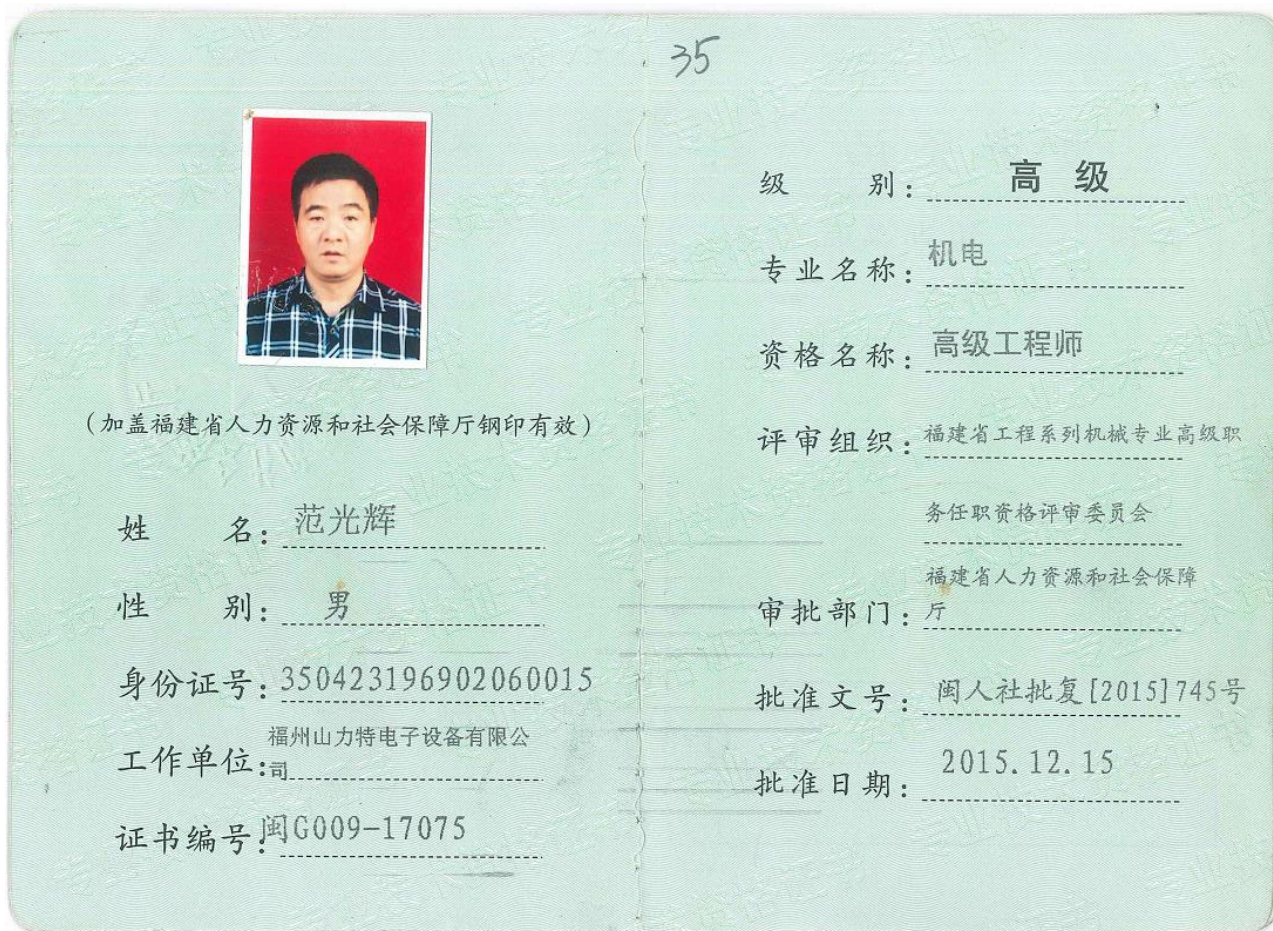 (加盖福建省人力资源和社会保障厅钢印有效)
姓 名: 范光辉
性 别: 男
身份证号: 350423196902060015
工作单位: 福州山力特电子设备有限公
司
证书编号: 闽G009-17075
35
级 别: 高 级
专业名称: 机电
资格名称: 高级工程师
评审组织: 福建省工程系列机械专业高级职
务任职资格评审委员会
福建省人力资源和社会保障
审批部门: 厅
批准文号: 闽人社批复[2015]745号
批准日期: 2015.12.15